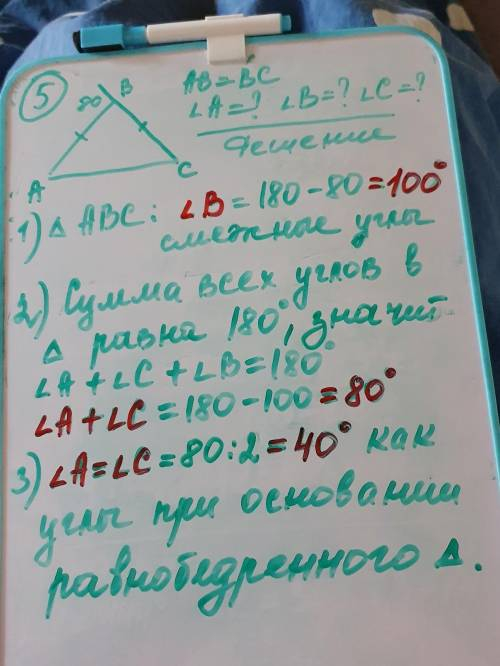 5
80
B
A
C
AB=BC
∠A=? ∠B=? ∠C=?
Решение
1) Δ ABC: ∠B = 180-80=100°
смежные углы
2) Сумма всех углов в
Δ равна 180°, значит
∠A+∠C+∠B=180°
∠A+∠C=180-100=80°
3) ∠A=∠C=80:2=40° как
углы при основании
равнобедренного Δ.